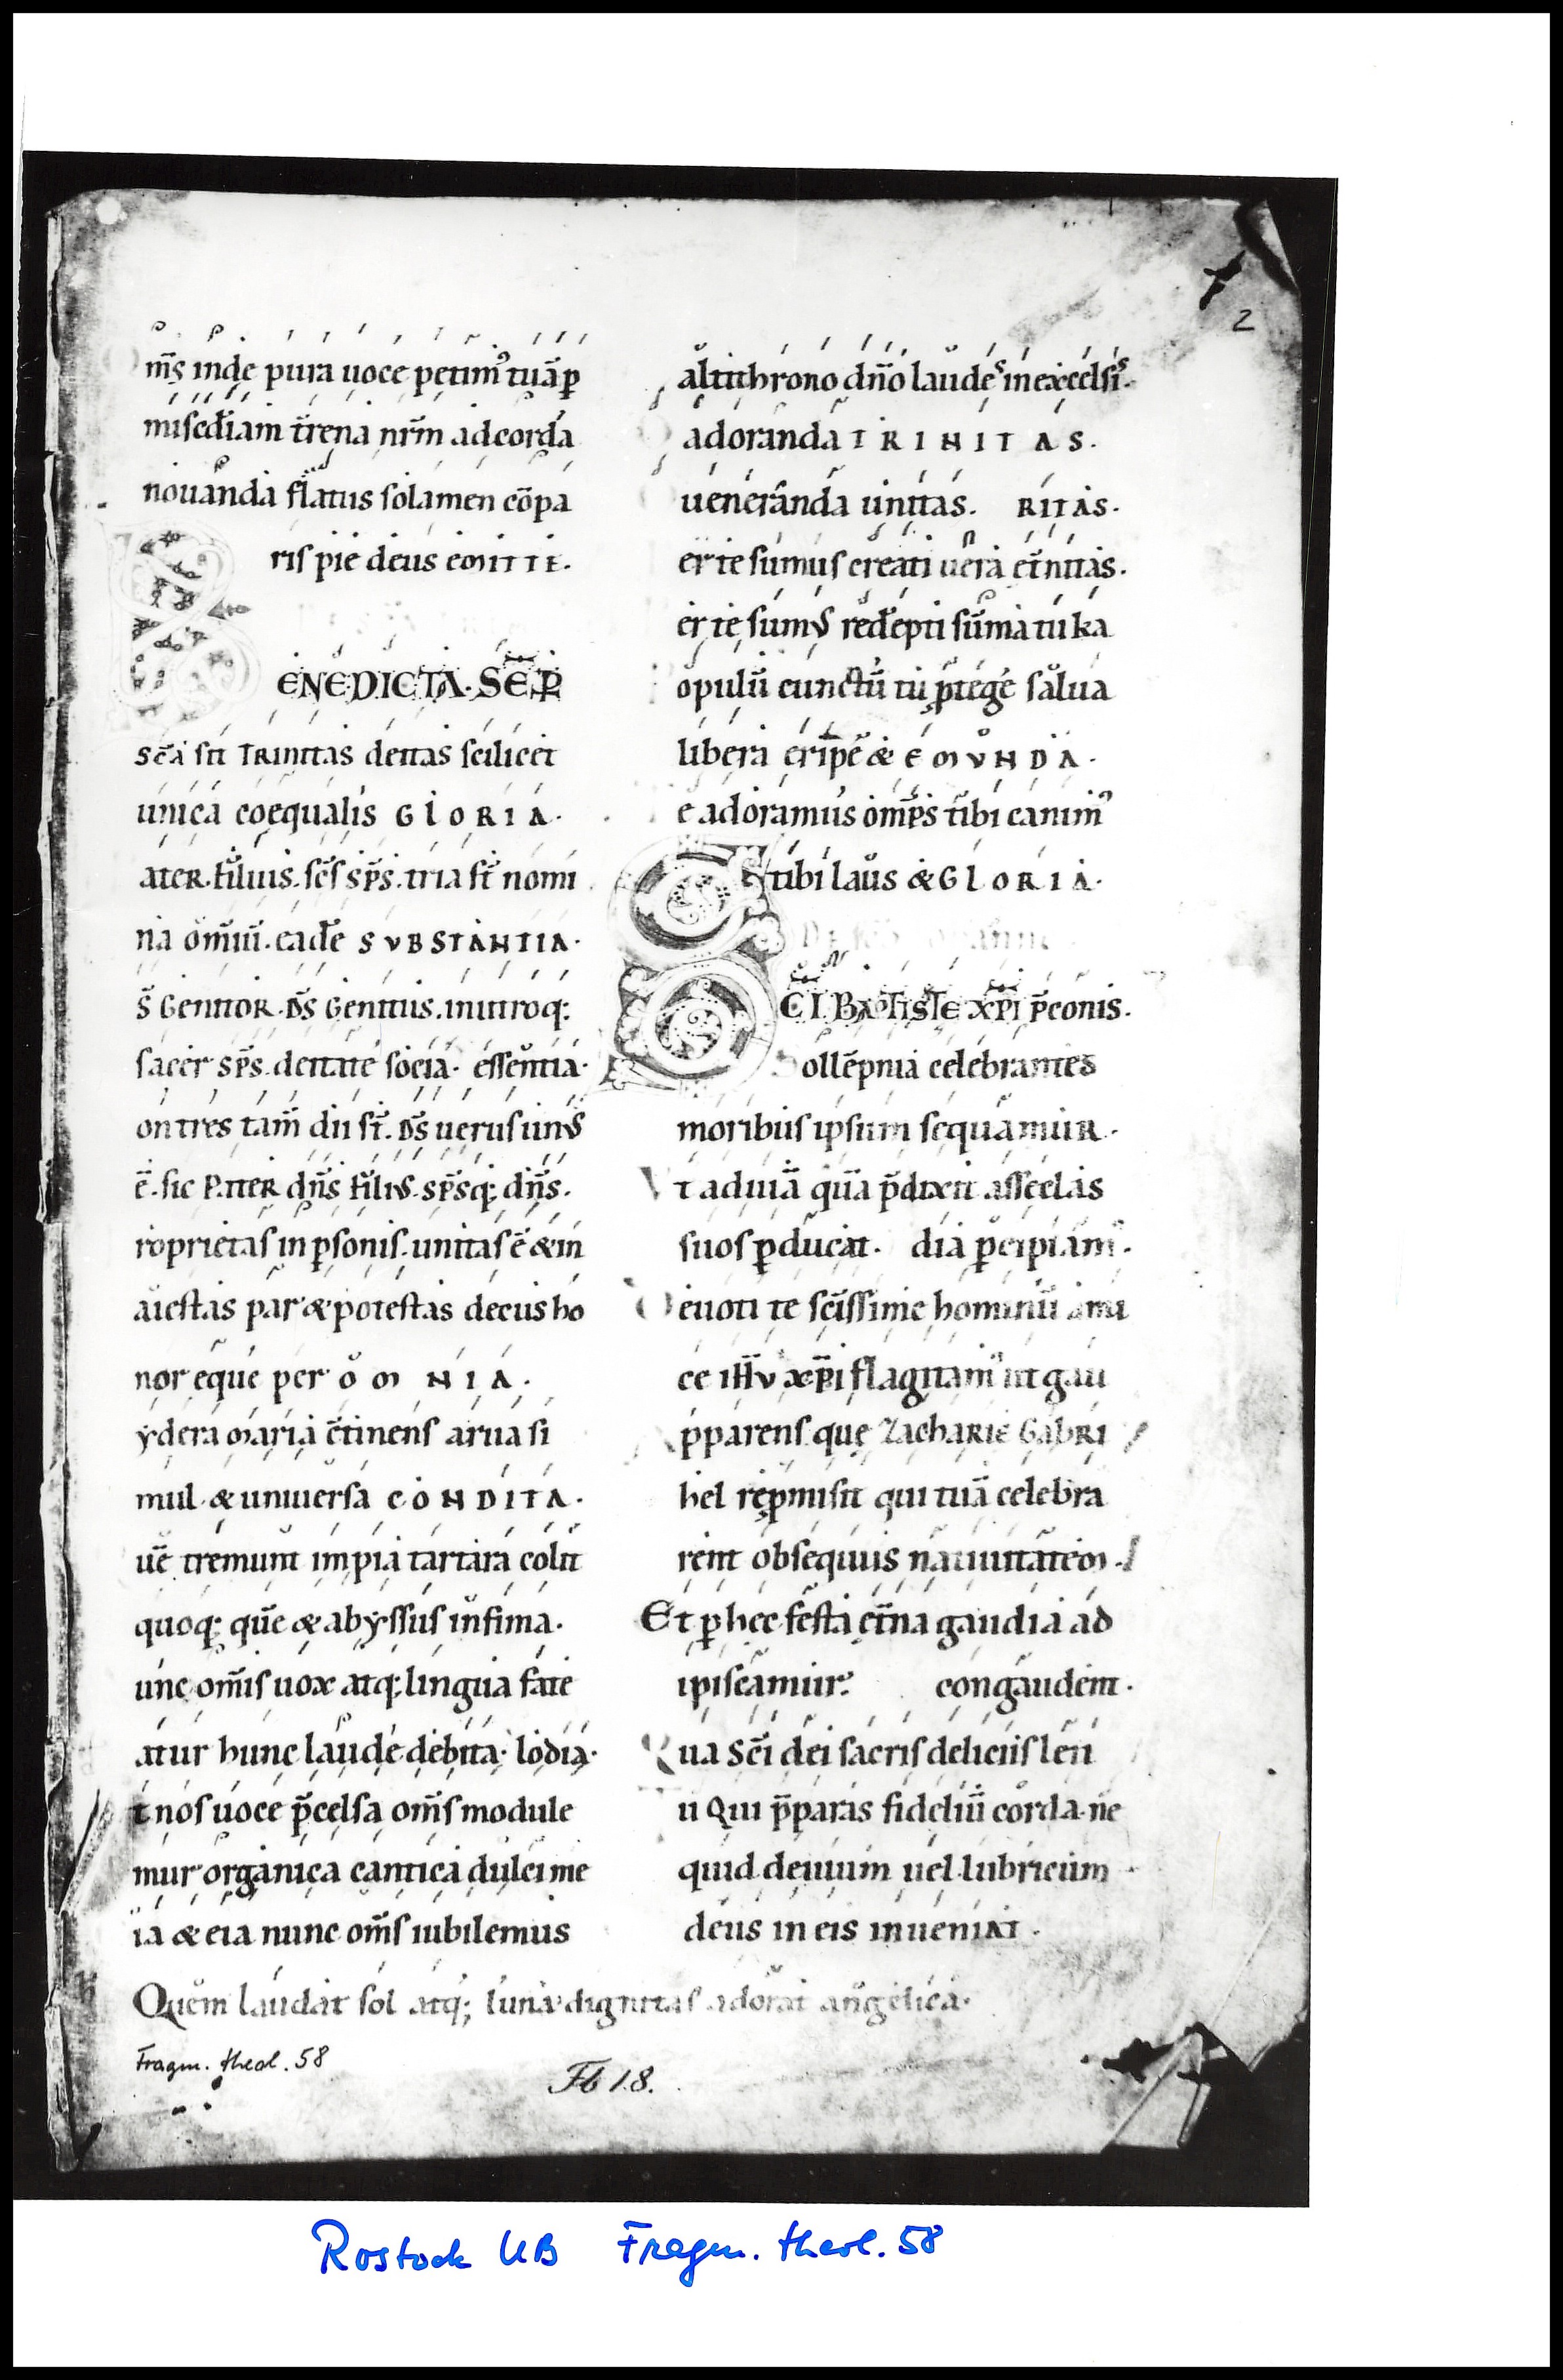 2
m̄s inde pura uoce petim⁹ tuā p̲
misc̄diam t̄rena nr̄m ad corda
nouanda flatus solamen cōpa
ris pie deus emitte.
ENEDICTA. SEP̄
sc̄a sit TRinitas deitas scilicet
unica coequalis GLORIA.
ateR. filius. sc̄s sp̄s. tria st̄ nomi
na om̄iū. eadē SVBSTANTIA.
s̄ GenitoR. Ds̄ Genitus. inutroq;
sacer sp̄s. deitate socia. essentia.
on tres tam̄ dii st̄. Ds̄ uerus unus
ē. sic PateR dn̄s filius. sp̄sq; dn̄s.
roprietas in p̲sonis. unitas ē & in
aiestas par & potestas decus ho
nor eque per OMNIA.
ydera maria c̄tinens arua si
mul & uniuersa CONDITA.
uē tremunt impia tartara colit
quoq; quē & abyssus infima.
unc om̄is uox atq; lingua fate
atur hunc laude debita. lodia.
t nos uoce p̄celsa om̄s module
mur organica cantica dulci me
ia & eia nunc om̄s iubilemus
altithrono dn̄o laudes in excelsis.
adoranda TRINITAS.
ueneranda unitas. RITAS.
er te sumus creati uera et̄nitas.
er te sumus redēpti sūma tu ka
opulū cunctū tu p̲tege salua
libera eripe & EMVNDA.
e adoramus omp̄s tibi canim⁹
tibi laus & GLORIA.
C̄I BAPTISTE XPI p̄conis.
ollēpnia celebrantes
moribus ipsum sequamuR.
Vt ad uiā quā p̄dixit asseclas
suos p̲ducat. dia p̲cipiam⁹.
Deuoti te sc̄issime hominū ami
ce ih̄v xp̄i flagitam⁹ ut gau
Apparens que ZachaRie GabRi
hel rep̲misit qui tuā celebra
rent obsequiis natiuitatem.
Et p̲ hec festa et̄na gaudia ad
ipiscamur. congaudent.
Qua Sc̄i dei sacris deliciis leti
u Qui p̄paras fideliū corda. ne
quid deuium uel lubricum
deus in eis inueniat.
Quem laudat sol atq; luna dignitas adorat angelica.
Fragm. theol. 58
Fb 18.
Rostock UB Fragm. theol. 58